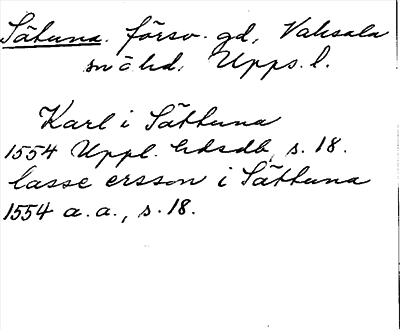 Sätuna. försv. gd, Vaksala
sn o hd. Upps. l.
Karl i Sättuna
1554 Uppl. hdsdb, s. 18.
lasse ersson i Sättuna
1554 a.a., s. 18.